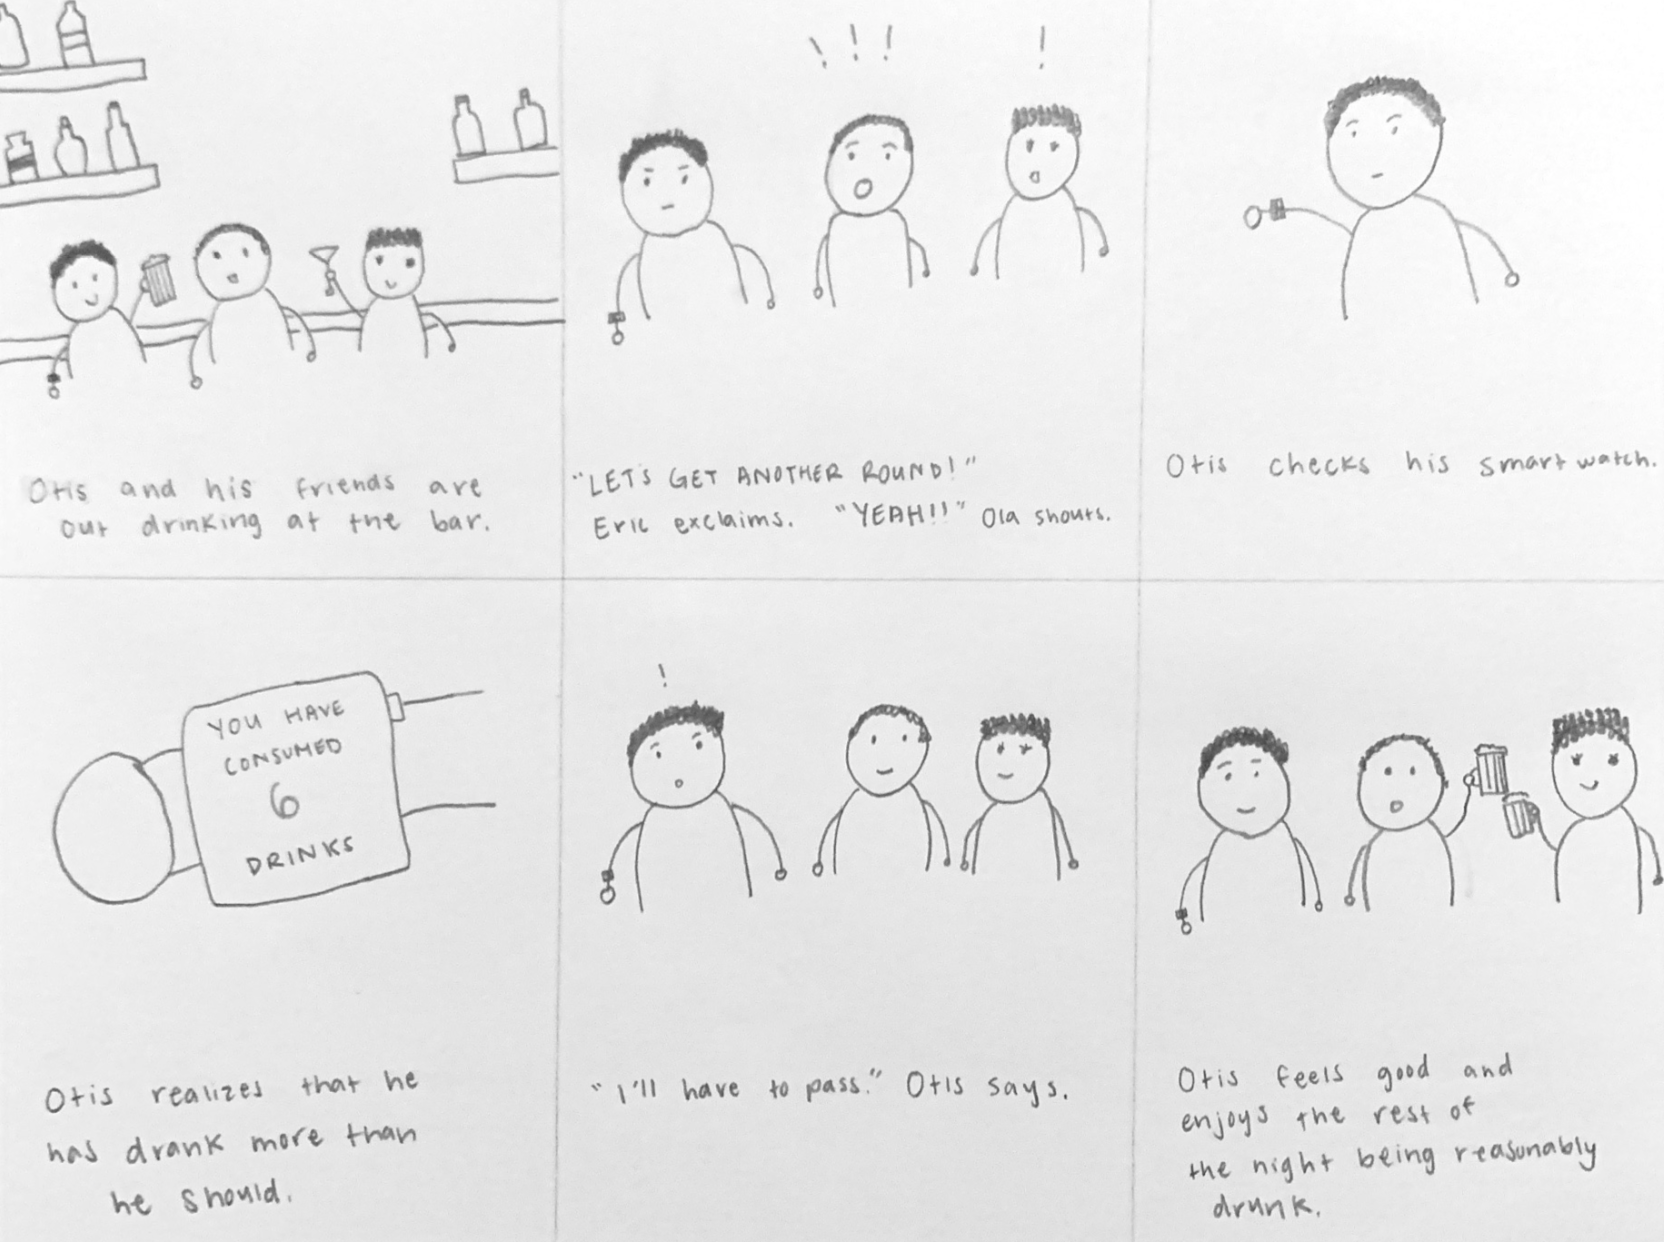 Otis and his friends are
out drinking at the bar.
! ! !
!
"LET'S GET ANOTHER ROUND!"
Eric exclaims. "YEAH!!" Ola shouts.
Otis checks his smartwatch.
YOU HAVE
CONSUMED
6
DRINKS
Otis realizes that he
has drank more than
he should.
!
"I'll have to pass." Otis says.
Otis feels good and
enjoys the rest of
the night being reasonably
drunk.